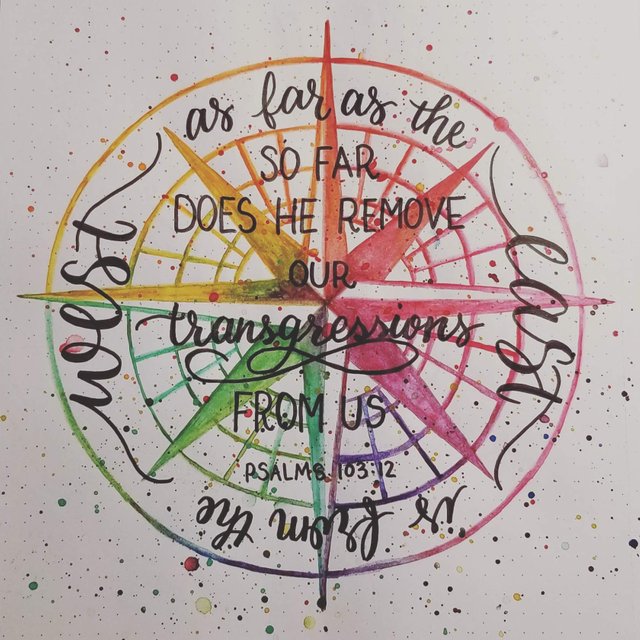 as far as the
east
is from the
west
SO FAR
DOES HE REMOVE
OUR
transgressions
FROM US
PSALMS 103:12